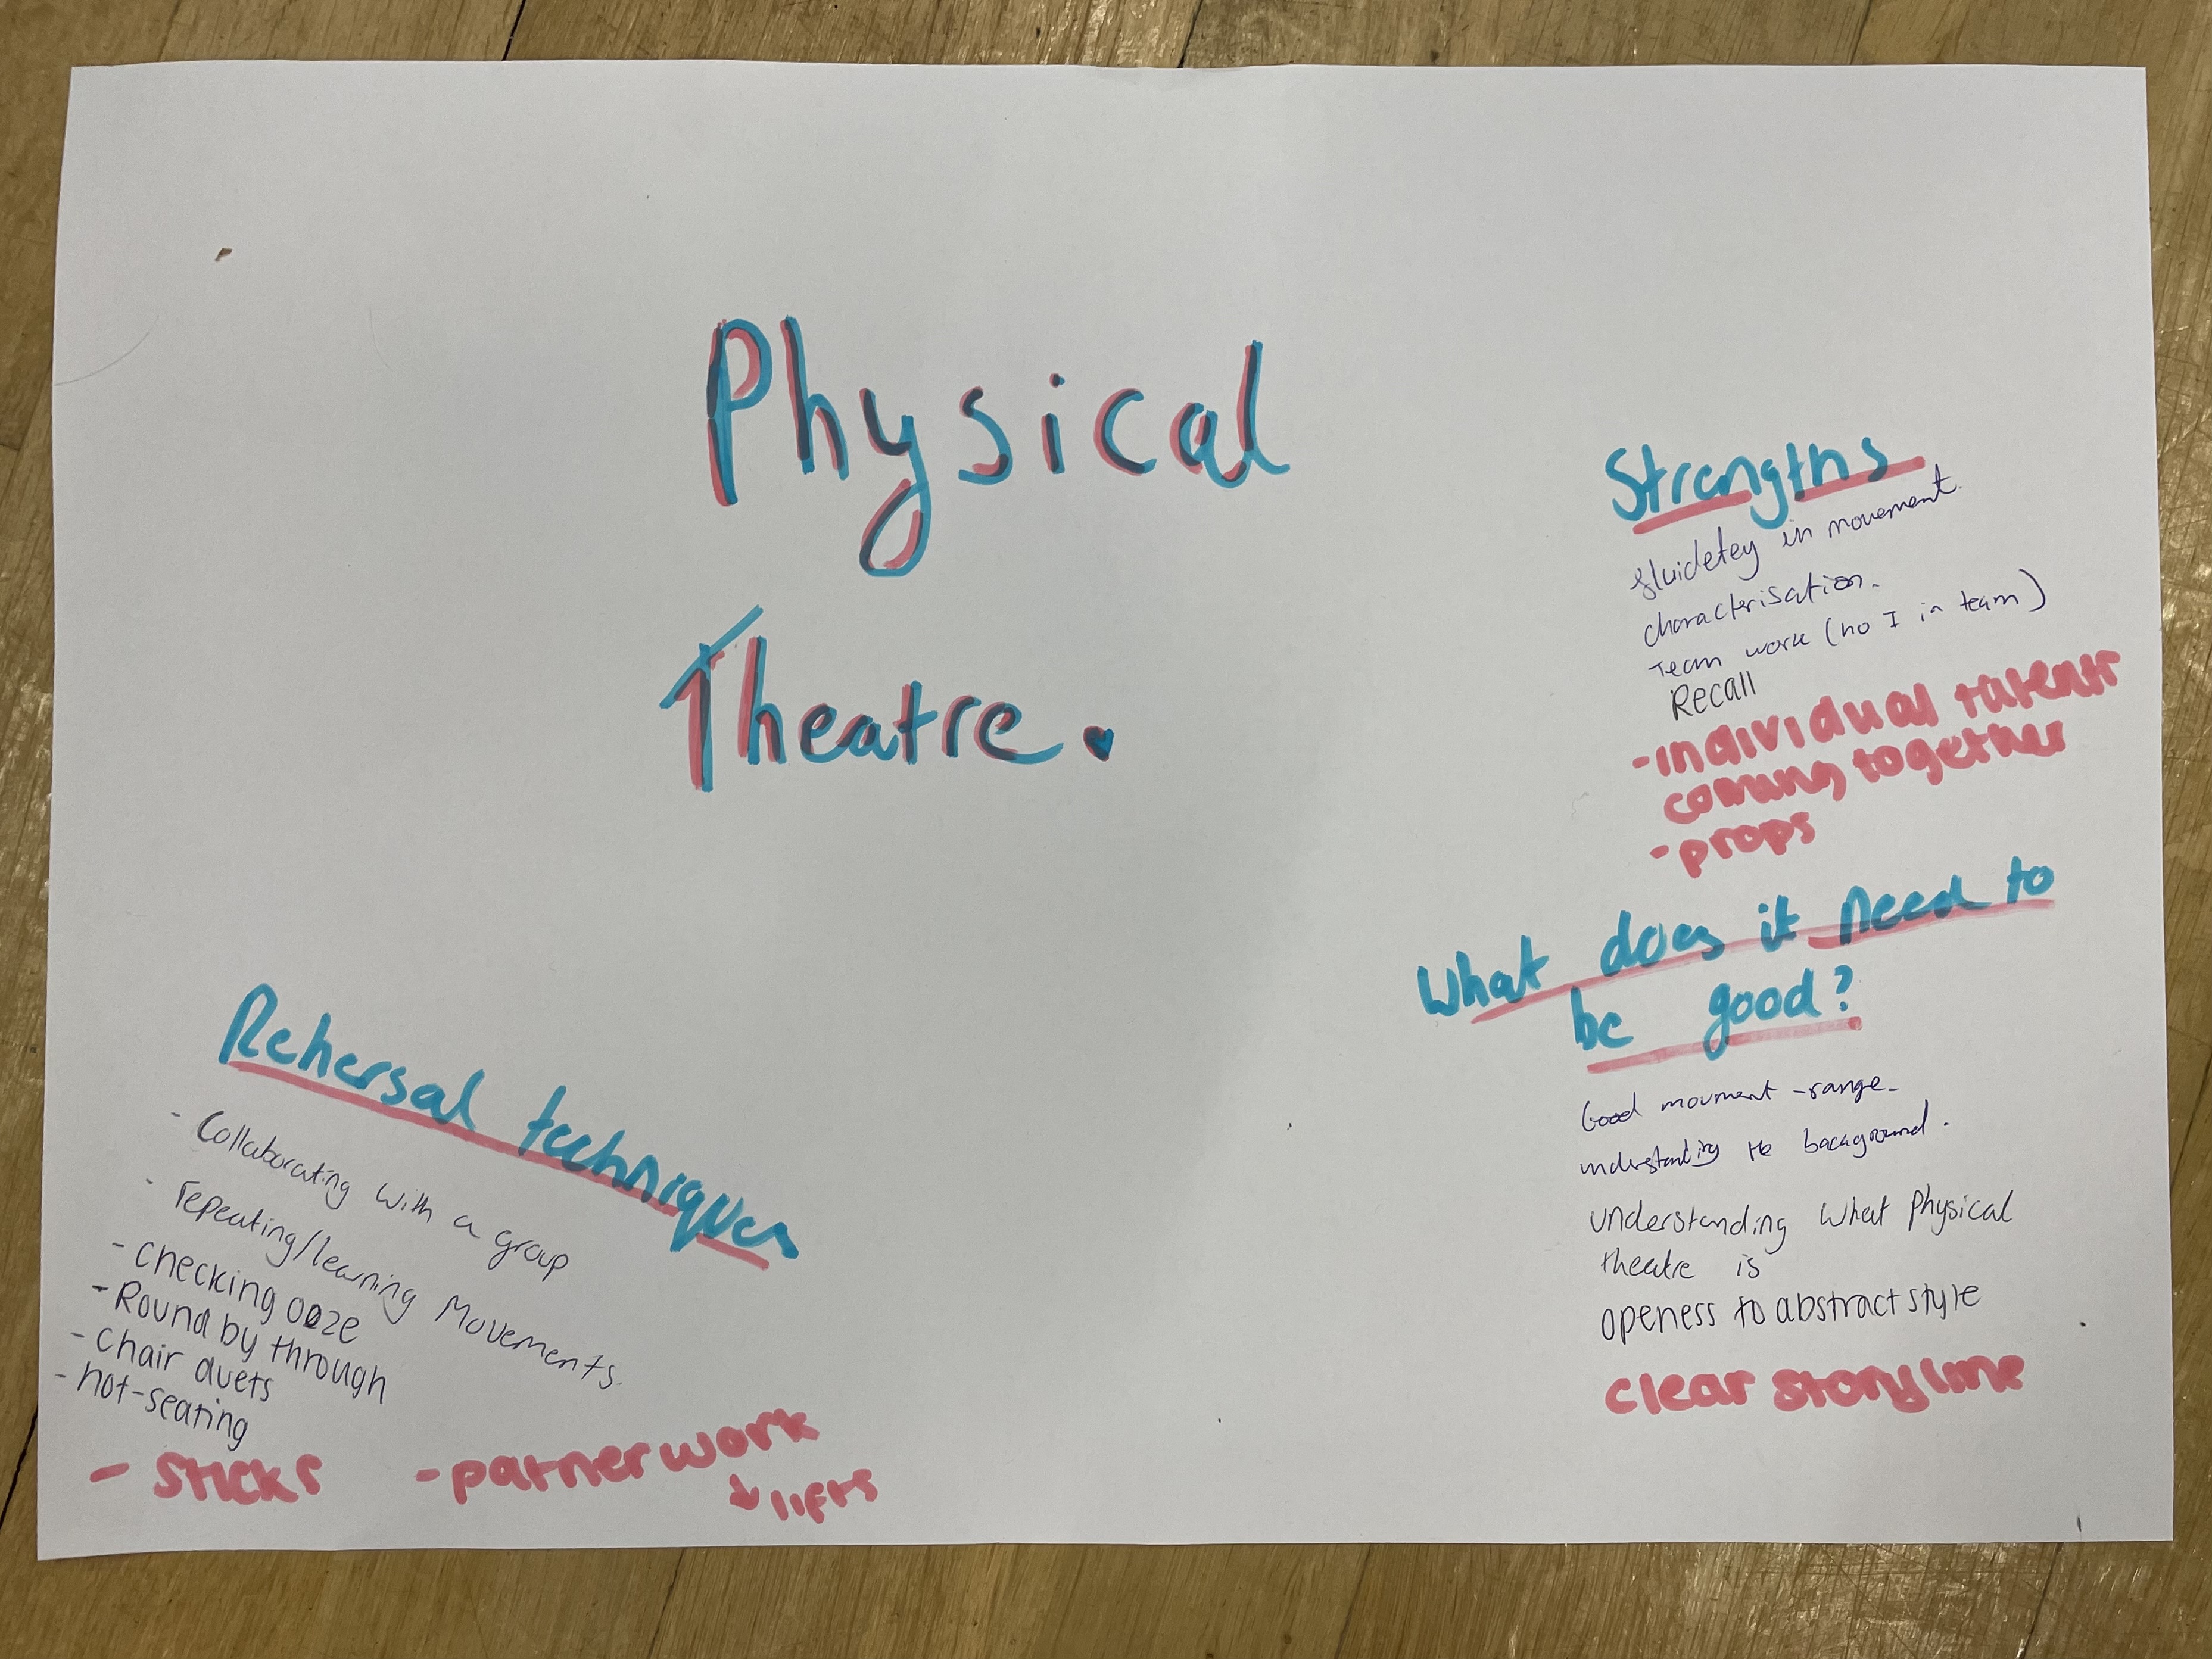 Physical
Theatre.
Strengths
fluidetey in movement.
characterisation.
Team work (no I in team)
Recall
-individual talents
coming together
-props
What does it need to
be good?
Good movment -range-
understanding the background.
understanding what physical
theatre is
openess to abstract style
clear storyline
Rehersal techniques
- Collaborating with a group
- repeating/learning Movements
- checking ooze
- Round by through
- chair duets
- hot-seating
- sticks
-partner work
↓ lifts